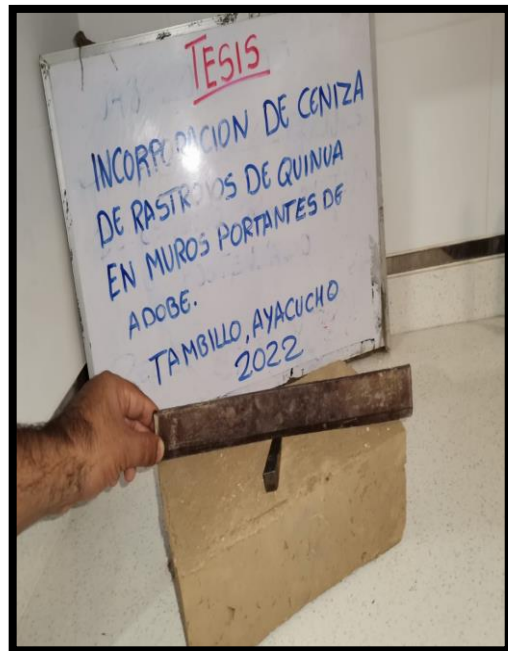 TESIS
INCORPORACION DE CENIZA
DE RASTROJOS DE QUINUA
EN MUROS PORTANTES DE
ADOBE.
TAMBILLO, AYACUCHO
2022